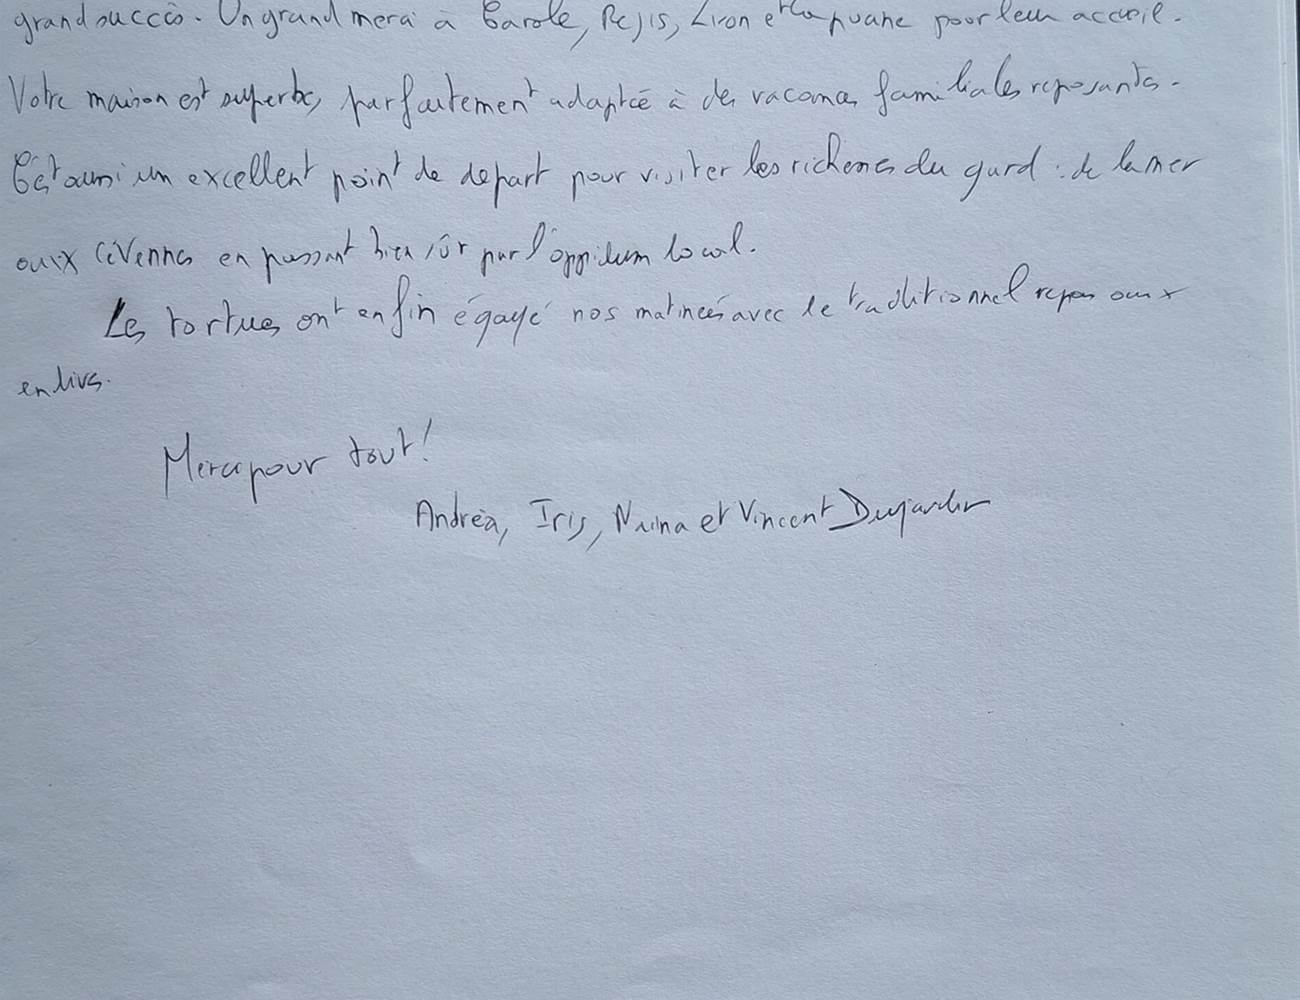 grand succès. Un grand merci à Carole, Régis, Liron et pour leur accueil.
Votre maison est superbe, parfaitement adaptée à des vacances familiales reposantes.
C'est aussi un excellent point de départ pour visiter les richesses du gard : de la mer
aux Cévennes en passant bien sûr par l'oppidum local.
Les tortues ont enfin égayé nos matinées avec le traditionnel repas aux
endives.
Merci pour tout!
Andréa, Iris, Naïna et Vincent Dujardin